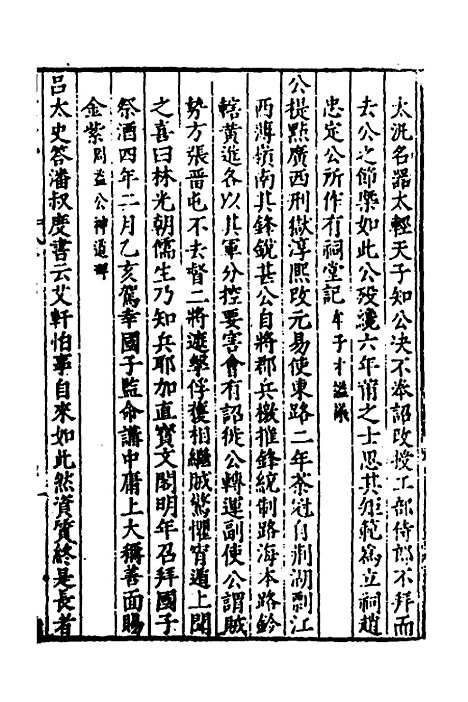 太洗名器太輕天子知公決不奉詔改授工部侍郎不拜而
去公之節槩如此公殁纔六年莆之士思其矩範為立祠趙
忠定公所作有祠堂記牟子才謚議
公提點廣西刑獄淳熙改元易使東路二年茶冦自荆湖剽江
西薄嶺南其鋒銳甚公自將郡兵檄摧鋒統制路海本路鈐
轄黄進各以其軍分控要害會有詔徙公轉運副使公謂賊
勢方張畱屯不去督二將遮擊俘獲相繼賊驚懼宵遁上聞
之喜曰林光朝儒生乃知兵耶加直寶文閣明年召拜國子
祭酒四年二月乙亥駕幸國子監命講中庸上大稱善面賜
金紫周益公神道碑
吕太史答潘叔度書云艾軒怕事自來如此然資質終是長者